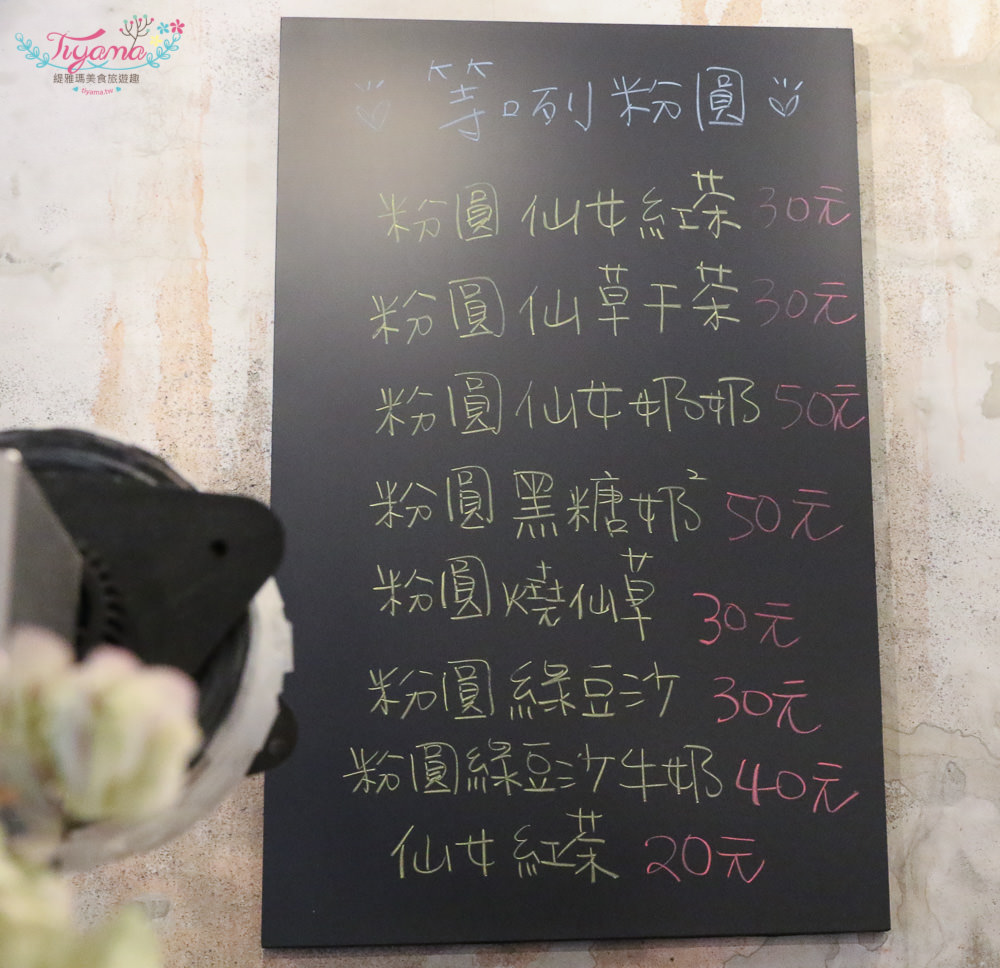 Tiyama
緹雅瑪美食旅遊趣
tiyama.tw
等咧粉圓
粉圓 仙女紅茶 30元
粉圓仙草干茶 30元
粉圓仙女奶奶 50元
粉圓黑糖奶² 50元
粉圓燒仙草 30元
粉圓綠豆沙 30元
粉圓綠豆沙牛奶 40元
仙女紅茶 20元